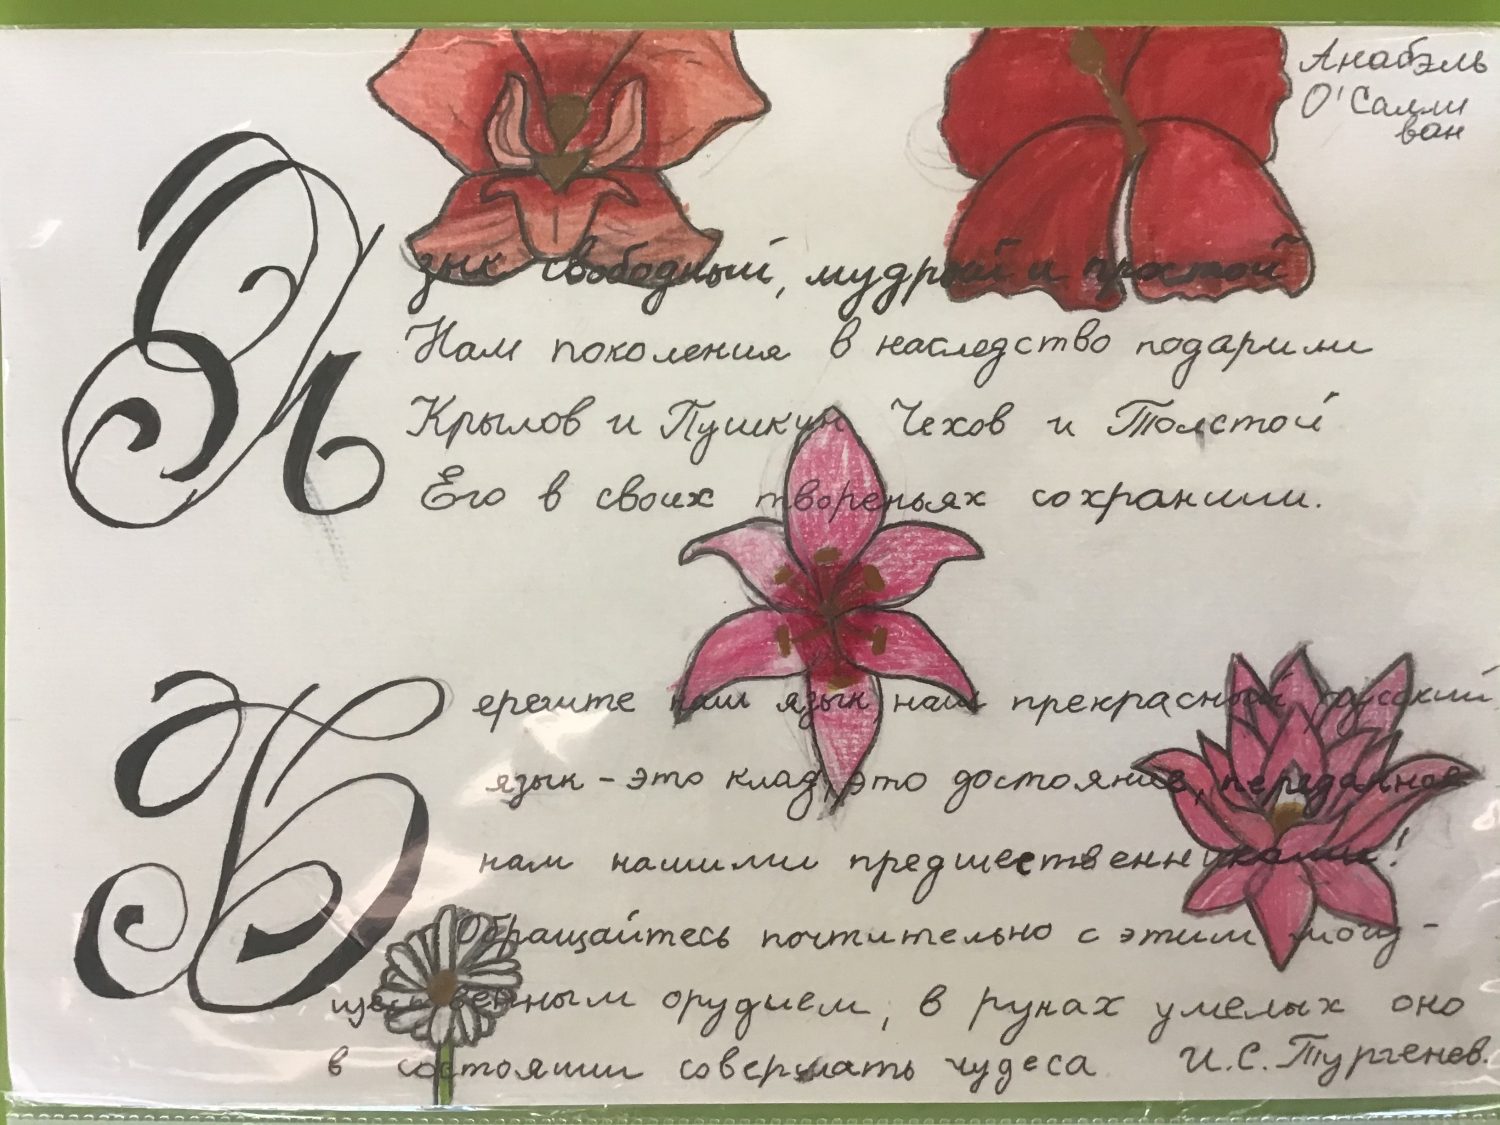 Анабэль
О'Салли
ван
Язык свободный, мудрый и простой
Нам поколения в наследство подарили
Крылов и Пушкин Чехов и Толстой
Его в своих твореньях сохранили.
Берегите наш язык, наш прекрасный русский
язык - это клад, это достояние, переданное
нам нашими предшественниками!
Обращайтесь почтительно с этим могу-
щественным орудием, в руках умелых оно
в состоянии совершать чудеса И.С.Тургенев.